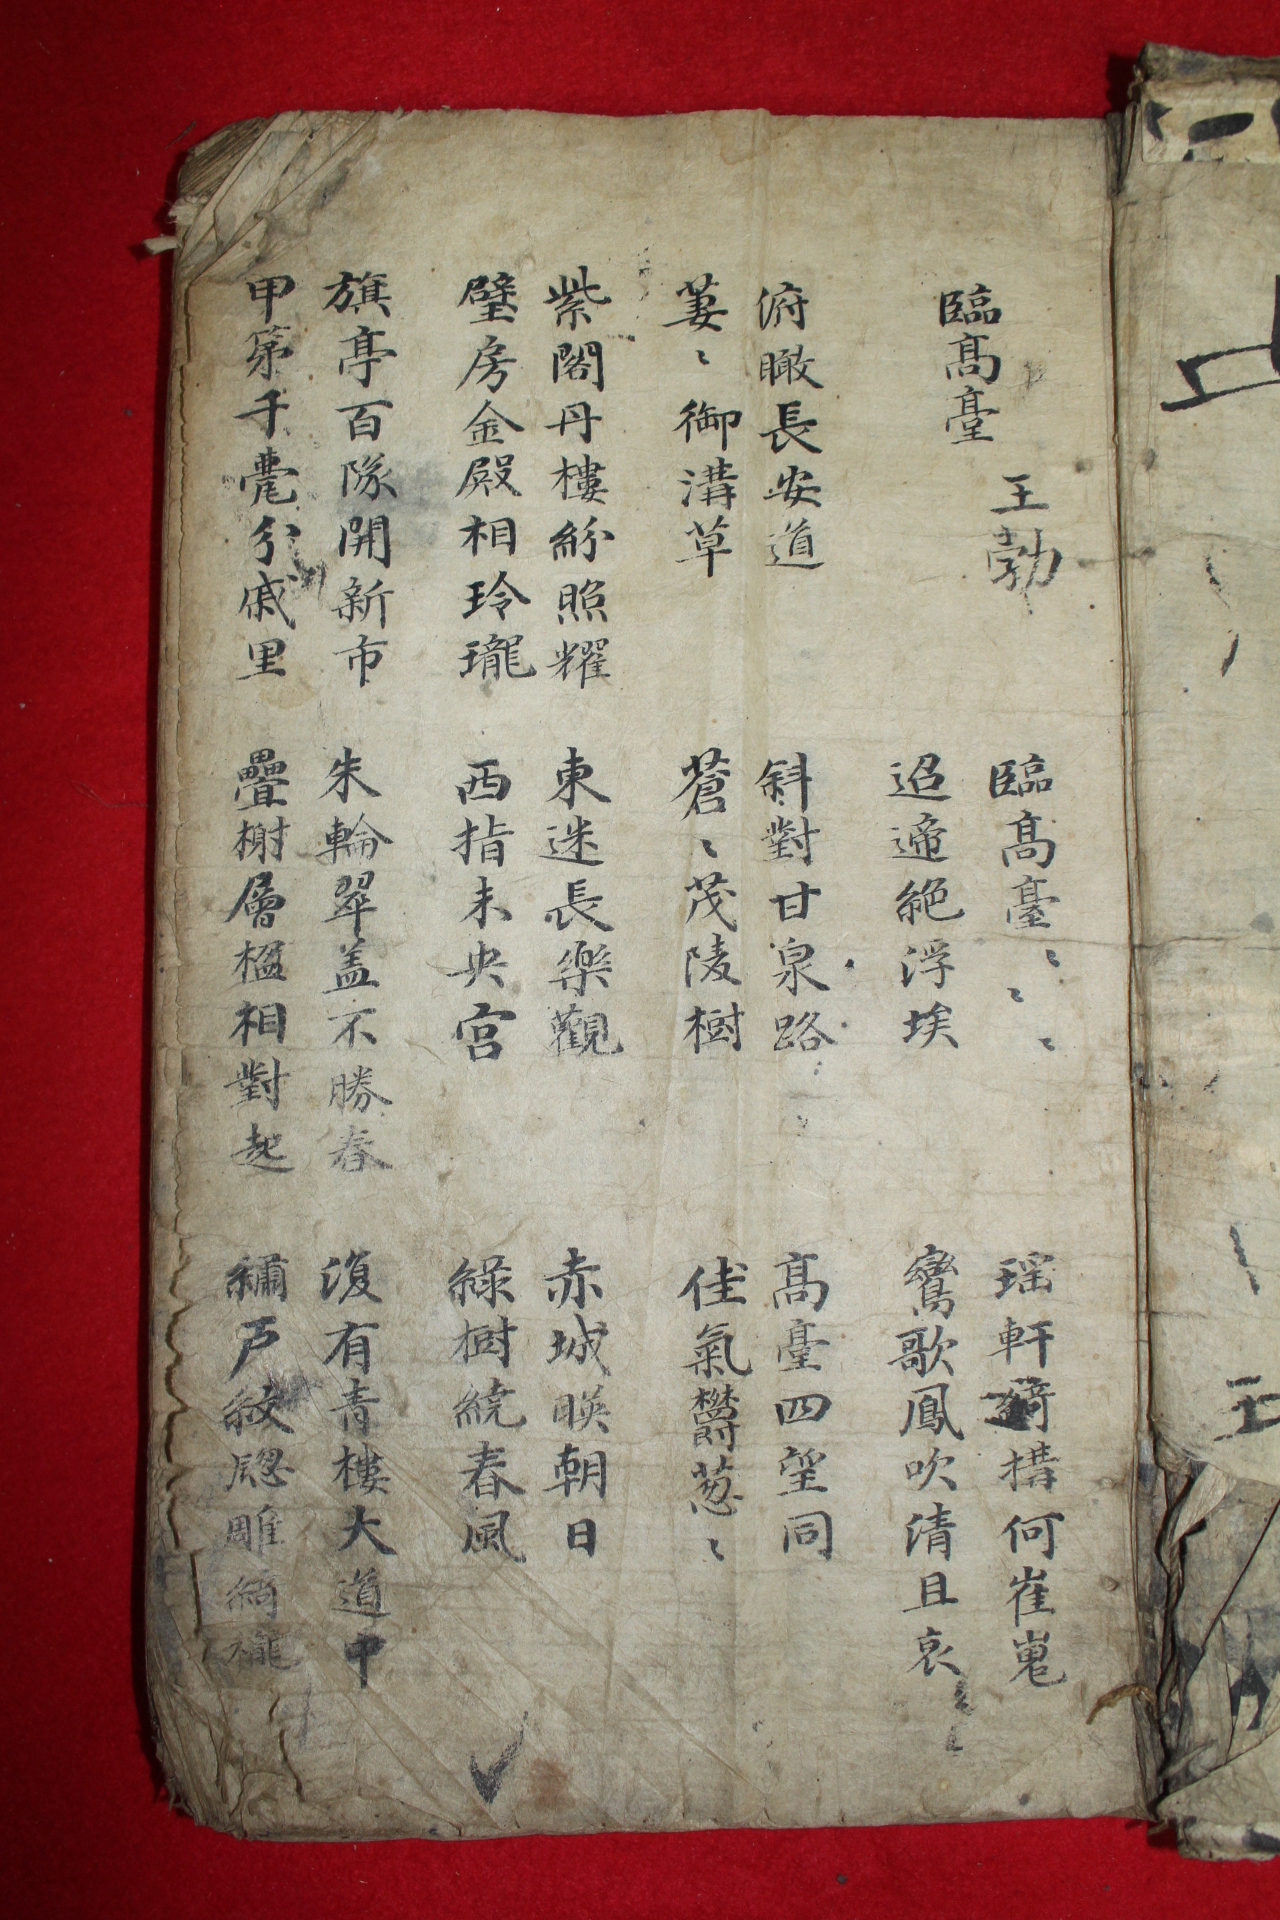 臨髙臺
王勃
臨髙臺ヽヽヽ
迢遆絶浮埃
瑶軒綺構何崔嵬
鸞歌鳳吹清且哀
俯瞰長安道
萋ヽ御溝草
斜對甘泉路
蒼ヽ茂陵樹
髙臺四望同
佳氣欝葱ヽ
紫閣丹樓紛照耀
璧房金殿相玲瓏
東迷長樂觀
西指未央宮
赤城暎朝日
緑樹繞春風
旗亭百隊開新市
甲第千甍分戚里
朱輪翠盖不勝春
疊榭層楹相對起
復有青樓大道中
繡戸紋牕雕綺櫳